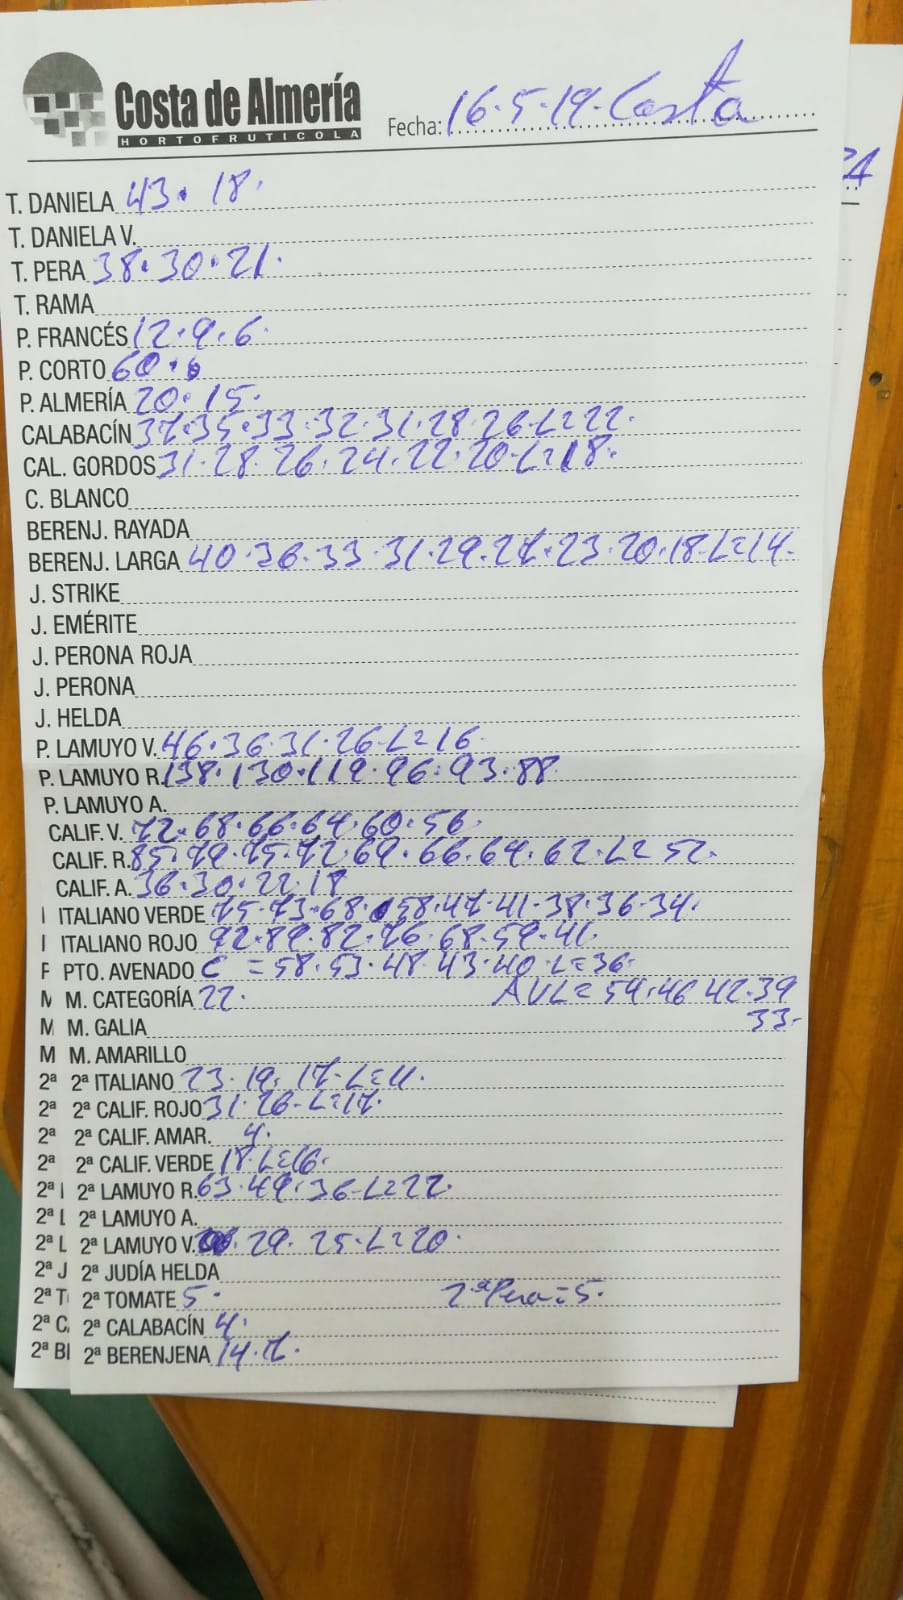 Costa de Almería
HORTOFRUTICOLA
Fecha: 16.5.19. Costa
T. DANIELA 43. 18.
T. DANIELA V.
T. PERA 38.30.21.
T. RAMA
P. FRANCÉS 12.9.6.
P. CORTO 60.
P. ALMERÍA 20.15.
CALABACÍN 37.35.33.32.31.28.26.L=22.
CAL. GORDOS 31.28.26.24.22.20.L=18.
C. BLANCO
BERENJ. RAYADA
BERENJ. LARGA 40.36.33.31.29.27.23.20.18.L=14.
J. STRIKE
J. EMÉRITE
J. PERONA ROJA
J. PERONA
J. HELDA
P. LAMUYO V. 46.36.31.26.L=16.
P. LAMUYO R. 138.130.119.96.93.88
P. LAMUYO A.
CALIF. V. 72.68.66.64.60.56.
CALIF. R. 85.79.75.72.69.66.64.62.L=52.
CALIF. A. 36.30.22.18
ITALIANO VERDE 75.73.68.58.47.41.38.36.34.
ITALIANO ROJO 92.89.82.76.68.59.41.
PTO. AVENADO C =58.53.48.43.40.L=36.
M. CATEGORÍA 22. AVL=54.46 42.39
M. GALIA 33.
M. AMARILLO
2ª 2ª ITALIANO 23.19.17.L=11.
2ª 2ª CALIF. ROJO 31.26.L=17.
2ª 2ª CALIF. AMAR. 4.
2ª 2ª CALIF. VERDE 18.L=16.
2ª 2ª LAMUYO R. 63.49.36.L=22.
2ª L 2ª LAMUYO A.
2ª L 2ª LAMUYO V. 29.25.L=20.
2ª J 2ª JUDÍA HELDA
2ª T 2ª TOMATE 5. 2ª Pera=5.
2ª C 2ª CALABACÍN 4.
2ª B 2ª BERENJENA 14.7.